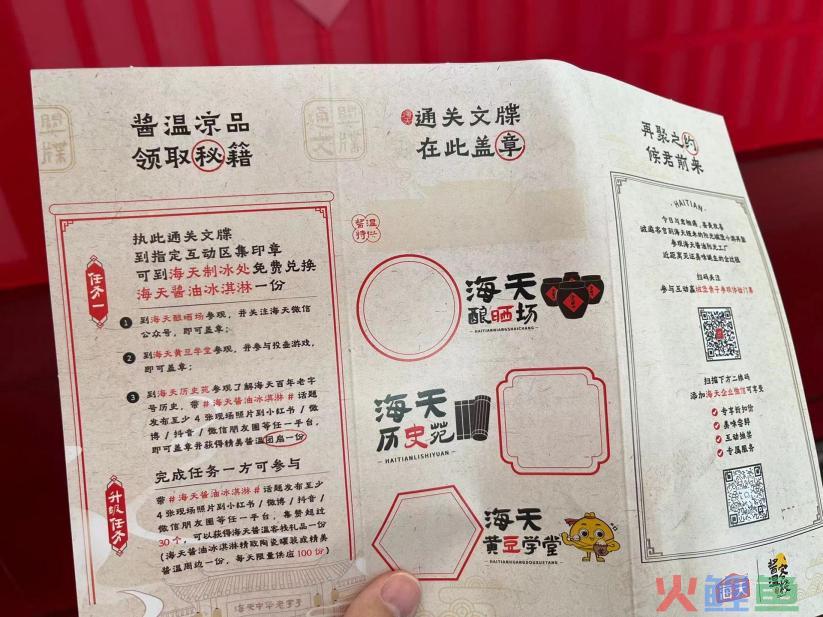 酱温凉品
领取秘籍
执此通关文牒
到指定互动区集印章
可到海天制冰处免费兑换
海天酱油冰淇淋一份
任务一
1 到海天酿晒场参观,并关注海天微信
公众号,即可盖章;
2 到海天黄豆学堂参观,并参与投壶游戏,
即可盖章;
3 到海天历史苑参观了解海天百年老字
号历史,带#海天酱油冰淇淋#话题
发布至少4张现场照片到小红书/微
博/抖音/微信朋友圈等任一平台,
即可盖章并获得精美酱温团扇一份
完成任务一方可参与
升级任务
带#海天酱油冰淇淋#话题发布至少
4张现场照片到小红书/微博/抖音/
微信朋友圈等任一平台,集赞超过
30个,可以获得海天酱温客栈礼品一份
(海天酱油冰淇淋精致陶瓷罐装或精美
酱温周边一份,每天限量供应100份)
海天中华老字号
通关文牒
在此盖章
酱温
特供
海天
酿晒场
HAITIANNIANGSHAICHANG
海天
历史苑
HAITIANLISHIYUAN
海天
黄豆学堂
HAITIANHUANGDOUXUETANG
再聚之约
候君前来
HAITIAN
参观海天酱油阳光工厂
近距离见证美味诞生的全过程
扫码关注
扫描下方二维码
添加海天企业微信可享受
专享折扣价
美味尝鲜
互动抽奖
专属服务
海天
火鲤鱼